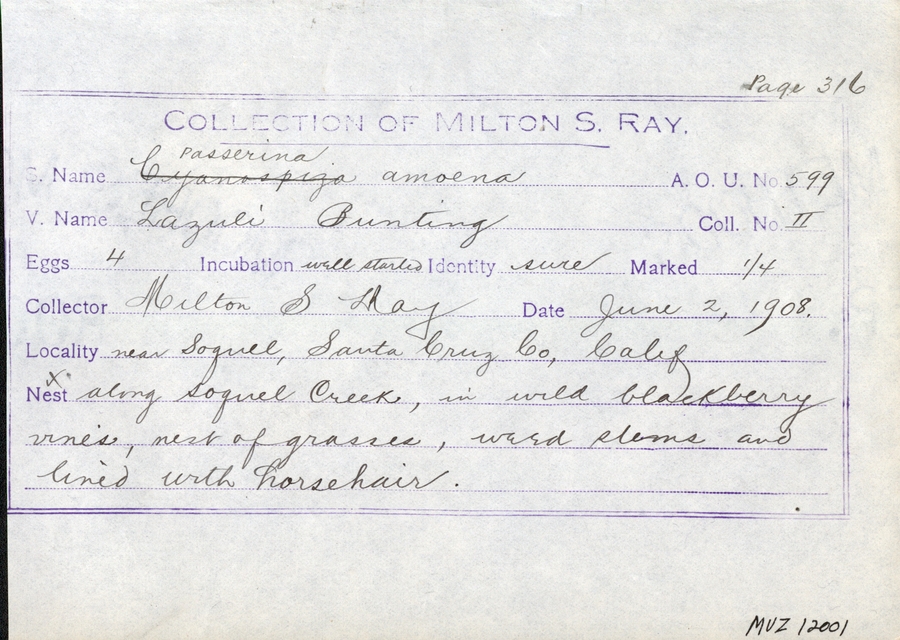 Page 316
COLLECTION OF MILTON S. RAY.
Passerina
S. Name Cyanospiza amoena A. O. U. No. 599
V. Name Lazuli Bunting Coll. No. II
Eggs 4 Incubation well started Identity sure Marked 1/4
Collector Milton S Ray Date June 2, 1908.
Locality near Soquel, Santa Cruz Co, Calif
Nest x. along Soquel Creek, in wild blackberry
vines, nest of grasses, weed stems and
lined with horsehair.
MVZ 12001